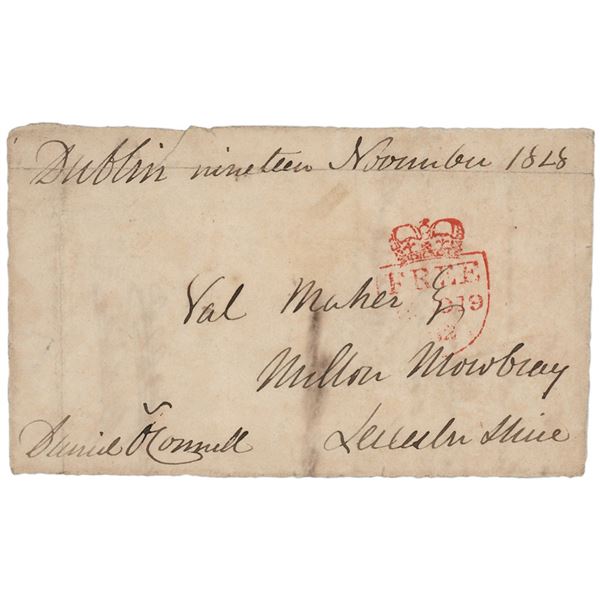 Dublin nineteen November 1828
FREE
19
Val Maher Esq
Melton Mowbray
Leicester Shire
Daniel O'Connell